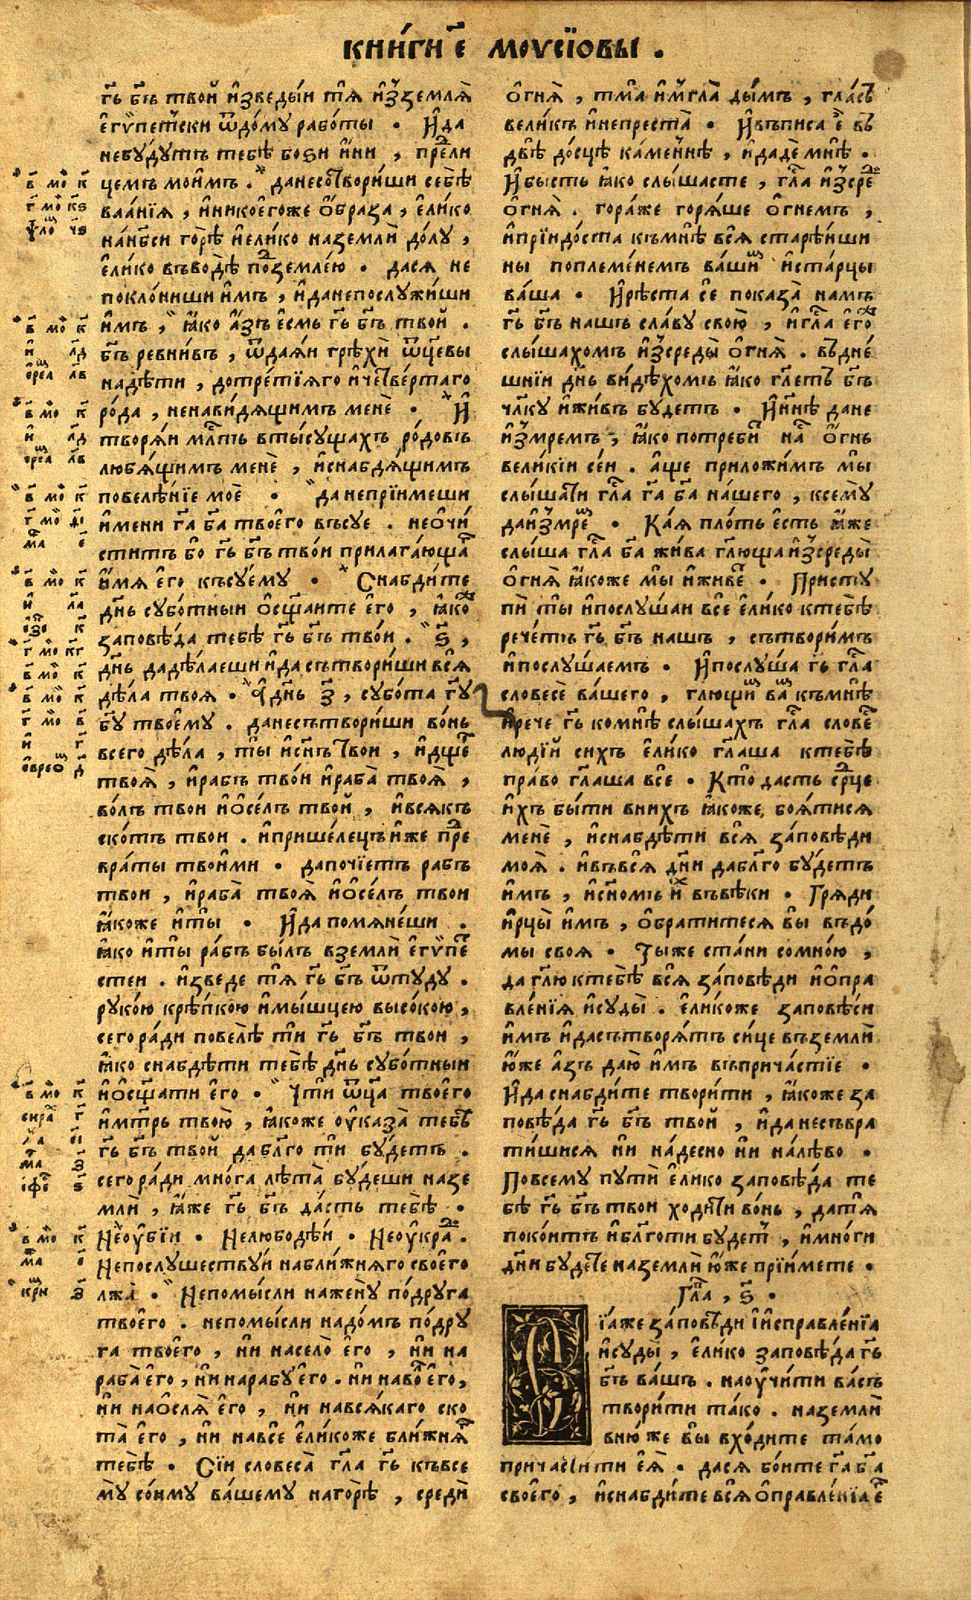 книги е҃ моѵсїовы .
гь҃ бъ҃ твой изведыи тя изземля
егѵпетски ѿдому работы · Ида
небудутъ тебѣ бози ини , прели
цемъ моимъ . данесотвориши себѣ
ваанїя , иникоегоже образа , елико
нанбси горѣ иелико наземли долу ,
елико въводѣ поземлею . дася не
поклониши имъ , иданепослужиши
имъ , яко азъ есмь гь҃ бъ҃ твой .
бъ҃ ревнивъ , ѿдаяи грѣхи ѿцевы
надѣти , дотретїяго ичетвертаго
рода , ненавидящимъ мене · И
творяи млть втысущахъ родовъ
любящимъ мене , иснабдящимъ
повелѣнїе мое · данепрїимеши
имени га҃ ба҃ твоего въсуе . неочи
ститъ бо гь҃ бъ҃ твои прилагающа
имя его късуему · Снабдите
днь суботныи осщаите его , яко
заповѣда тебѣ гь҃ бъ҃ твои . ѕ҃ ,
днь дадѣлаеши ида сътвориши вся
дѣла твоя · Ѵ҃днь з҃ , субота гу҃
бу҃ твоему . данесътвориши вонь
всего дѣла , ты иснъ твои , идщи
твоя , ирабъ твои ираба твоя ,
волъ твои иоселъ твой , ивсякъ
скотъ твои . ипришелецъ иже пре
враты твоими · дапочїетъ рабъ
твои , ираба твоя иоселъ твои
якоже иты · Ида помянеши .
яко иты рабъ былъ вземли егѵпе
стеи . изведе тя гь҃ бъ҃ ѿтуду .
рукою крѣпкою имышцею высокою ,
сегоради повелѣ ти гь҃ бъ҃ твои ,
яко снабдѣти тебѣ днь суботныи
иосщати его · Чти ѿца твоего
имтрь твою , якоже ѹказа тебѣ
гь҃ бъ҃ твой даблго ти будетъ .
сегоради многа лѣта будеши назе
мли , яже гь҃ бъ҃ дасть тебѣ ·
Неоубїи · Нелюбодѣи · Неоукра .
Непослушествуи наближняго своего
лжа · Непомысли нажену подруга
твоего . непомысли надомъ подру
га твоего , ни насело его , ни на
раба его , ни нарабу его . ни наво его ,
ни наосля его , ни навсякаго ско
та его , ни навсе еликоже ближня
тебѣ · Сїи словеса гла гь҃ къвсе
му сонму вашему нагорѣ , среди
огня , тма имгла дымъ , гласъ
великъ инепреста · Ивъписа е въ
двѣ досцѣ каменнѣ , идаде мнѣ .
Ибысть яко слышасте , гла изсре
огня . гораже горяше огнемъ ,
иприидоста къмнѣ вся старѣиши
ны поплеменемъ ваши истарцы
ваша · Ирѣста се показа намъ
гь҃ бъ҃ нашъ славу свою , игла его
слышахомъ изсреды огня . въдне
шнїи днь видѣхомъ яко глетъ бъ҃
члку иживъ будетъ · Ининѣ дане
измремъ , яко потреби на огнь
великїи сеи . аще приложимъ мы
слышати гла га҃ ба҃ нашего , ксему
даизмре · Кая плоть есть яже
слыша гла ба҃ жива глюща изсреды
огня якоже мы иживе · Присту
пи ты ипослушаи все елико ктебѣ
речетъ гь҃ бъ҃ нашъ , сътворимъ
ипослушаемъ · Ипослуша гь҃ гла
словесе вашего , глющи ва къмнѣ
ирече гь҃ комнѣ слышахъ гла слове
людїй сихъ елико глаша ктебѣ
право глаша все · Кто дасть срце
ихъ быти внихъ якоже боятися
мене , иснабдѣти вся заповѣди
моя . ивъвся дни даблго будетъ
имъ , исномъ и въвѣки · Гряди
ирцы имъ , обратитеся вы въдо
мы своя · Тыже стани сомною ,
да глю ктебѣ вся заповѣди иопра
вленїя исуды . еликоже заповѣси
имъ идасътворятъ сице въземли
юже азъ даю имъ въпричастїе ·
Ида снабдите творити , якоже за
повѣда гь҃ бъ҃ твой , иданесъвра
тишися ни надесно ни налѣво ·
Повсему пути елико заповѣда те
бѣ гь҃ бъ҃ твои ходити вонь , датя
покоитъ иблготи будет , имноги
дни будете наземли юже прїимете ·
Гла , ѕ҃ ·
їаже заповѣди їисправленїа
исуды , елико заповѣда гь҃
бъ҃ вашъ . наоучити васъ
творити тако . наземли
внюже вы входите тамо
причасти́ти ея · дася боите га҃ ба҃
своего , иснабдите вся оправленїа е